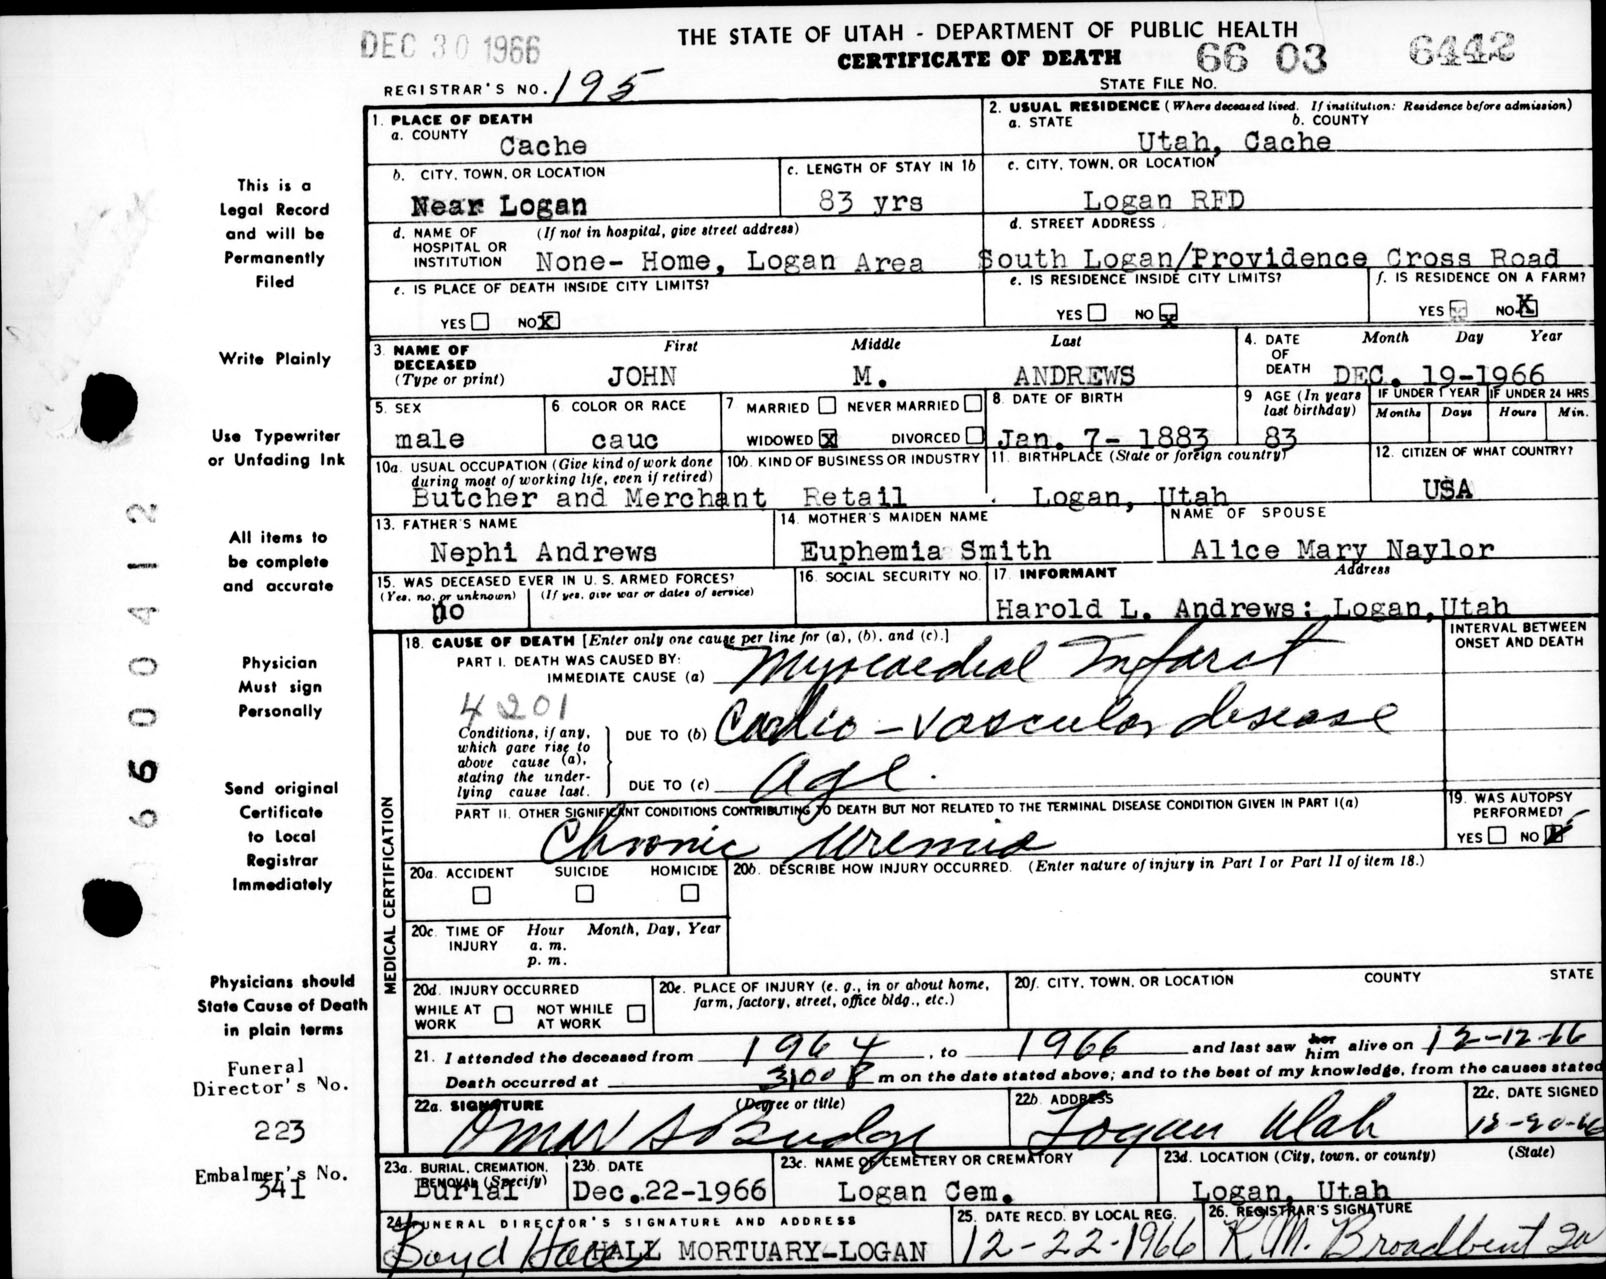 DEC 30 1966
THE STATE OF UTAH - DEPARTMENT OF PUBLIC HEALTH
CERTIFICATE OF DEATH
66 03 6442
REGISTRAR'S NO. 195
STATE FILE NO.
1. PLACE OF DEATH
a. COUNTY
Cache
2. USUAL RESIDENCE (Where deceased lived. If institution: Residence before admission)
a. STATE b. COUNTY
Utah, Cache
b. CITY, TOWN, OR LOCATION
Near Logan
c. LENGTH OF STAY IN 1b
83 yrs
c. CITY, TOWN, OR LOCATION
Logan RFD
d. NAME OF HOSPITAL OR INSTITUTION (If not in hospital, give street address)
None- Home, Logan Area
d. STREET ADDRESS
South Logan/Providence Cross Road
e. IS PLACE OF DEATH INSIDE CITY LIMITS?
YES NO X
e. IS RESIDENCE INSIDE CITY LIMITS?
YES NO X
f. IS RESIDENCE ON A FARM?
YES NO X
3. NAME OF DECEASED (Type or print)
First Middle Last
JOHN M. ANDREWS
4. DATE OF DEATH
Month Day Year
DEC. 19-1966
5. SEX
male
6. COLOR OR RACE
cauc
7 MARRIED NEVER MARRIED
WIDOWED X DIVORCED
8. DATE OF BIRTH
Jan. 7- 1883
9 AGE (In years last birthday)
83
IF UNDER 1 YEAR IF UNDER 24 HRS
Months Days Hours Min.
10a. USUAL OCCUPATION (Give kind of work done during most of working life, even if retired)
Butcher and Merchant
10b. KIND OF BUSINESS OR INDUSTRY
Retail
11. BIRTHPLACE (State or foreign country)
Logan, Utah
12. CITIZEN OF WHAT COUNTRY?
USA
13. FATHER'S NAME
Nephi Andrews
14. MOTHER'S MAIDEN NAME
Euphemia Smith
NAME OF SPOUSE
Alice Mary Naylor
15. WAS DECEASED EVER IN U. S. ARMED FORCES?
(Yes, no, or unknown) (If yes, give war or dates of service)
no
16. SOCIAL SECURITY NO.
17. INFORMANT Address
Harold L. Andrews: Logan, Utah
18. CAUSE OF DEATH [Enter only one cause per line for (a), (b), and (c).]
INTERVAL BETWEEN ONSET AND DEATH
PART I. DEATH WAS CAUSED BY:
IMMEDIATE CAUSE (a) Myocardial Infarct
4201
Conditions, if any, which gave rise to above cause (a), stating the underlying cause last.
DUE TO (b) Cardio-vascular disease
DUE TO (c) age.
PART II. OTHER SIGNIFICANT CONDITIONS CONTRIBUTING TO DEATH BUT NOT RELATED TO THE TERMINAL DISEASE CONDITION GIVEN IN PART I(a)
Chronic Uremia
19. WAS AUTOPSY PERFORMED?
YES NO
20a. ACCIDENT SUICIDE HOMICIDE
20b. DESCRIBE HOW INJURY OCCURRED. (Enter nature of injury in Part I or Part II of item 18.)
20c. TIME OF INJURY Hour a. m. p. m. Month, Day, Year
20d. INJURY OCCURRED
WHILE AT WORK NOT WHILE AT WORK
20e. PLACE OF INJURY (e. g., in or about home, farm, factory, street, office bldg., etc.)
20f. CITY, TOWN, OR LOCATION COUNTY STATE
21. I attended the deceased from 1964, to 1966 and last saw her him alive on 12-12-66
Death occurred at 3:00 P m on the date stated above; and to the best of my knowledge, from the causes stated
22a. SIGNATURE (Degree or title)
Omar S Budge
22b. ADDRESS
Logan Utah
22c. DATE SIGNED
12-20-66
23a. BURIAL, CREMATION, REMOVAL (Specify)
Burial
23b. DATE
Dec. 22-1966
23c. NAME OF CEMETERY OR CREMATORY
Logan Cem.
23d. LOCATION (City, town, or county) (State)
Logan, Utah
24. FUNERAL DIRECTOR'S SIGNATURE AND ADDRESS
Boyd Hall HALL MORTUARY-LOGAN
25. DATE RECD. BY LOCAL REG.
12-22-1966
26. REGISTRAR'S SIGNATURE
R. M. Broadbent
MEDICAL CERTIFICATION
This is a
Legal Record
and will be
Permanently
Filed
Write Plainly
Use Typewriter
or Unfading Ink
All items to
be complete
and accurate
Physician
Must sign
Personally
Send original
Certificate
to Local
Registrar
Immediately
Physicians should
State Cause of Death
in plain terms
Funeral
Director's No.
223
Embalmer's No.
341
6600412